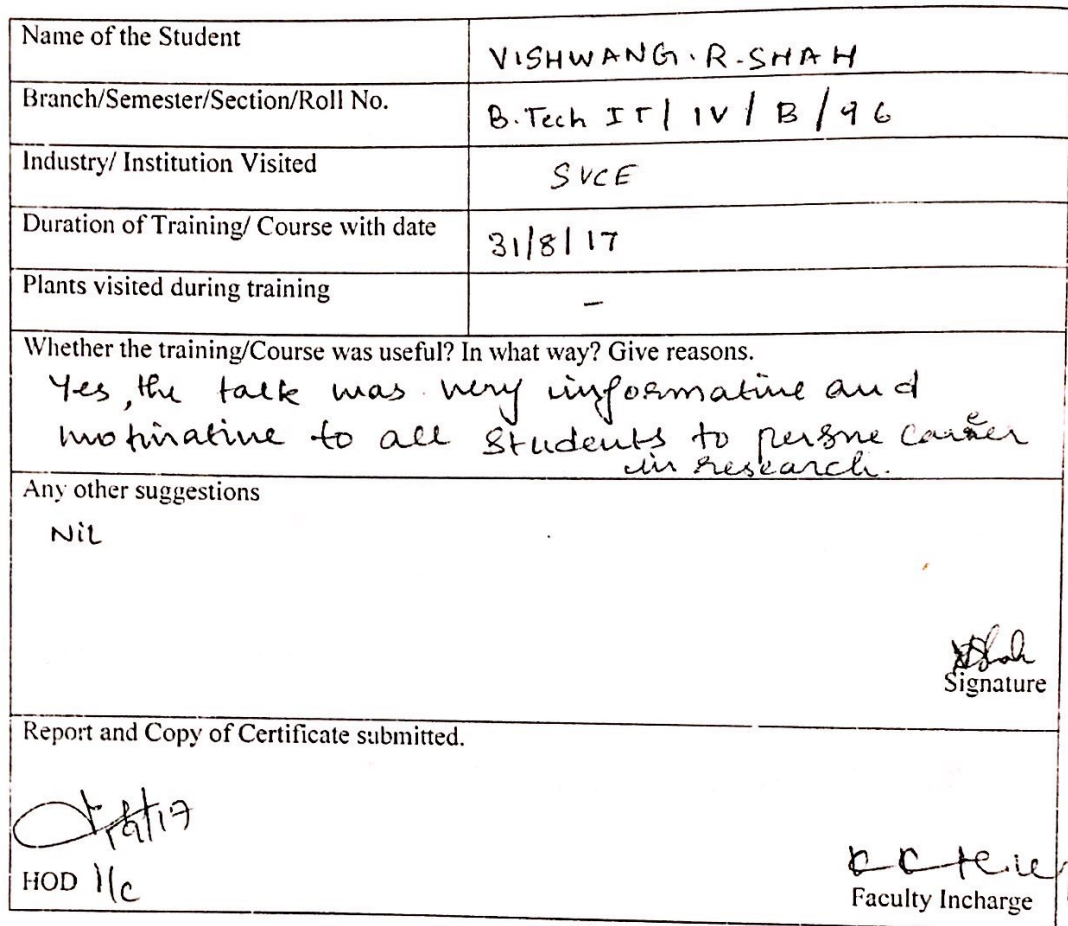 Name of the Student
VISHWANG.R-SHAH
Branch/Semester/Section/Roll No.
B.Tech IT/IV/B/96
Industry/ Institution Visited
SVCE
Duration of Training/ Course with date
31/8/17
Plants visited during training
-
Whether the training/Course was useful? In what way? Give reasons.
Yes, the talk was very informative and
motivative to all students to persue career
in research.
Any other suggestions
Nil
Signature
Report and Copy of Certificate submitted.
HOD I/c
Faculty Incharge